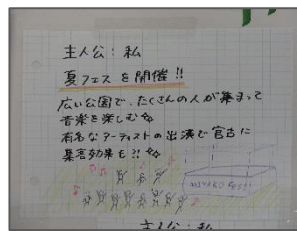 主人公：私
夏フェスを開催!!
広い公園で、たくさんの人が集まって
音楽を楽しむ
有名なアーティストの出演で宮古に
集客効果も!!
MIYAKO FEST!
主人公：私